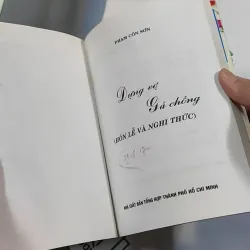 PHAN CÔN SƠN
Dựng vợ
Gả chồng
(HÔN LỄ VÀ NGHI THỨC)
NHÀ XUẤT BẢN TỔNG HỢP THÀNH PHỐ HỒ CHÍ MINH